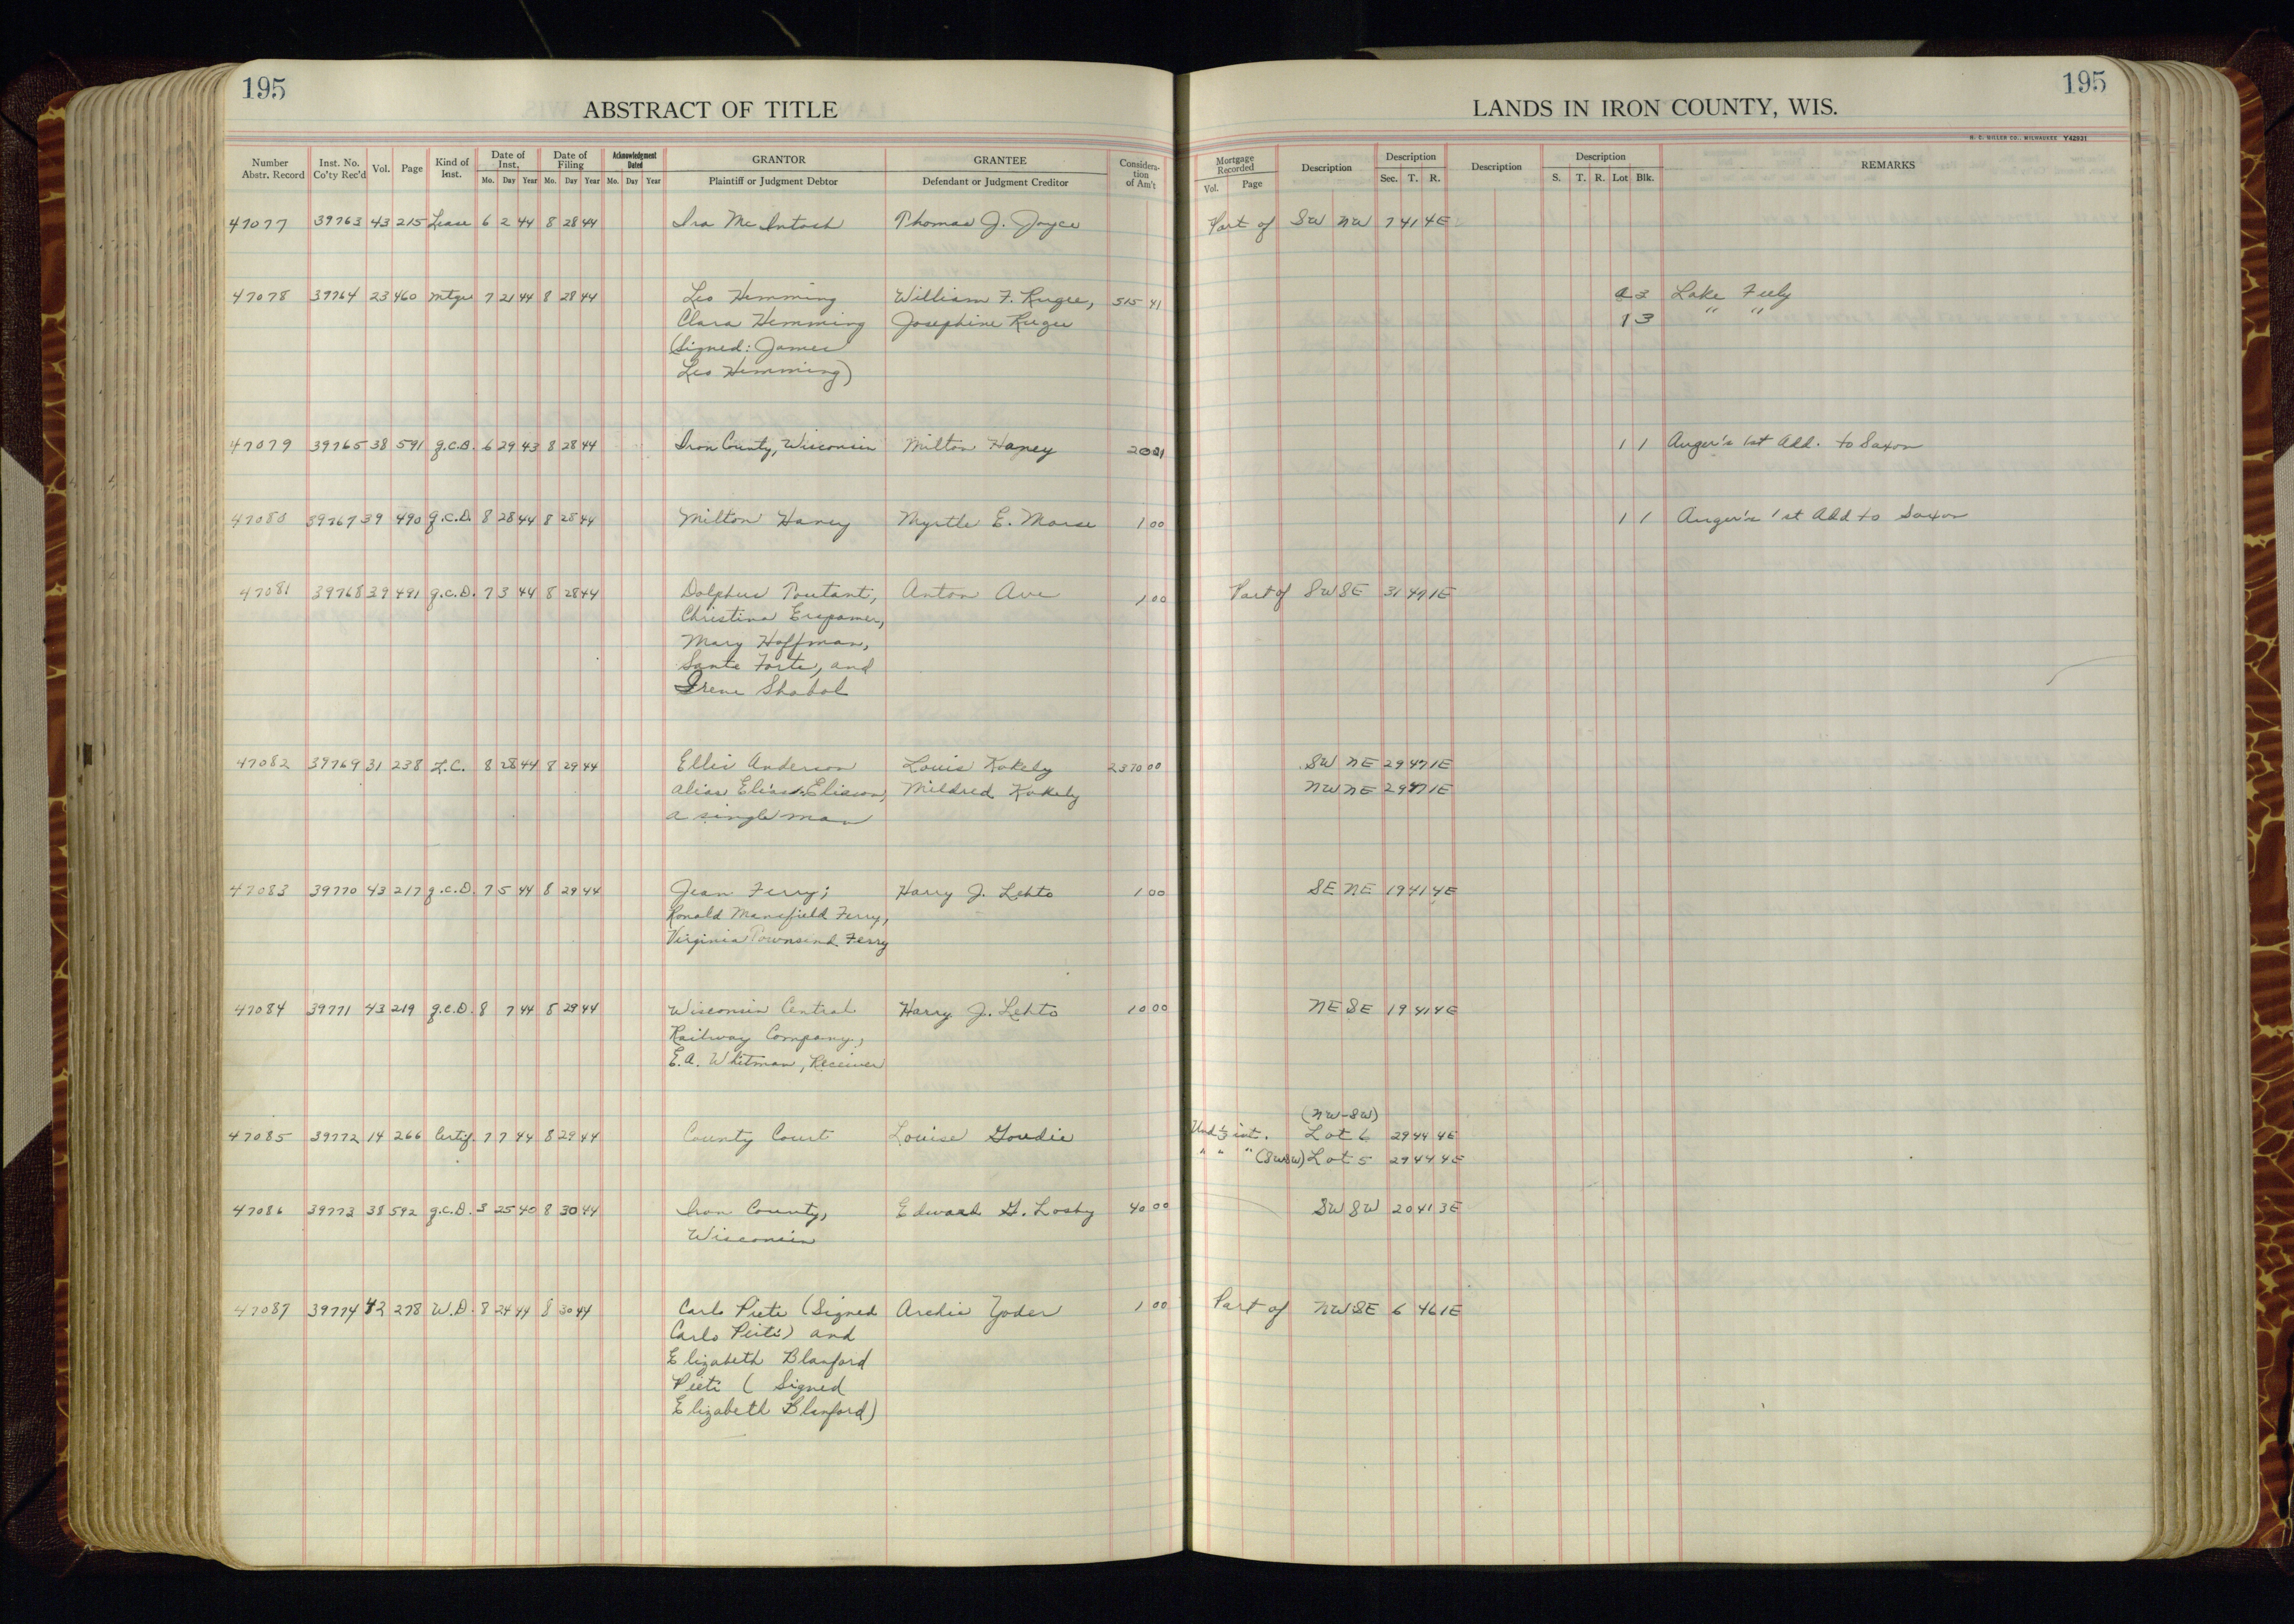 195
ABSTRACT OF TITLE
Number Abstr. Record Inst. No. Co'ty Rec'd Vol. Page Kind of Inst. Date of Inst. Mo. Day Year Date of Filing Mo. Day Year Acknowledgment Dated Mo. Day Year GRANTOR Plaintiff or Judgment Debtor GRANTEE Defendant or Judgment Creditor Considera- tion of Am't
47077 39763 43 215 Lease 6 2 44 8 28 44 Ira McIntosh Thomas J. Joyce
47078 39764 23 460 Mtge 7 21 44 8 28 44 Leo Hemming William F. Rugee, 515 41
Clara Hemming Josephine Rugee
(Signed: James
Leo Hemming)
47079 39765 38 591 q.c.D. 6 29 43 8 28 44 Iron County, Wisconsin Milton Haney 20 21
47080 39767 39 490 q.c.D. 8 28 44 8 28 44 Milton Haney Myrtle E. Morse 1 00
47081 39768 39 491 q.c.D. 7 3 44 8 28 44 Dolphus Toutant, Anton Ave 1 00
Christina Erspamer,
Mary Hoffman,
Sante Forte, and
Irene Shabol
47082 39769 31 238 L.C. 8 28 44 8 29 44 Ellis Anderson Louis Kakely 2370 00
alias Elias Eliason, Mildred Kakely
a single man
47083 39770 43 217 q.c.D. 7 5 44 8 29 44 Jean Ferry; Harry J. Lehto 1 00
Ronald Mansfield Ferry,
Virginia Townsend Ferry
47084 39771 43 219 q.c.D. 8 7 44 8 29 44 Wisconsin Central Harry J. Lehto 10 00
Railway Company,
E.A. Whitman, Receiver
47085 39772 14 266 Certif. 7 7 44 8 29 44 County Court Louise Goudie
47086 39773 38 592 q.c.D. 3 25 40 8 30 44 Iron County, Edward G. Losby 40 00
Wisconsin
47087 39774 42 278 W.D. 8 24 44 8 30 44 Carlo Pieti (Signed Archie Yoder 1 00
Carlo Peiti) and
Elizabeth Blanford
Pieti ( Signed
Elizabeth Blanford)
195
LANDS IN IRON COUNTY, WIS.
H. C. MILLER CO., MILWAUKEE Y42931
Mortgage Recorded Vol. Page Description Description Sec. T. R. Description Description S. T. R. Lot Blk. REMARKS
Part of SW NW 7 41 4E
2 3 Lake Feely
1 3 " "
1 1 Auger's 1st Add. to Saxon
1 1 Auger's 1st Add to Saxon
Part of SW SE 31 47 1E
SW NE 29 47 1E
NW NE 29 47 1E
SE NE 19 41 4E
NE SE 19 41 4E
(NW-SW)
Und ⅓ int. Lot 6 29 44 4E
" " " (SWSW) Lot 5 29 44 4E
SW SW 20 41 3E
Part of NW SE 6 46 1E